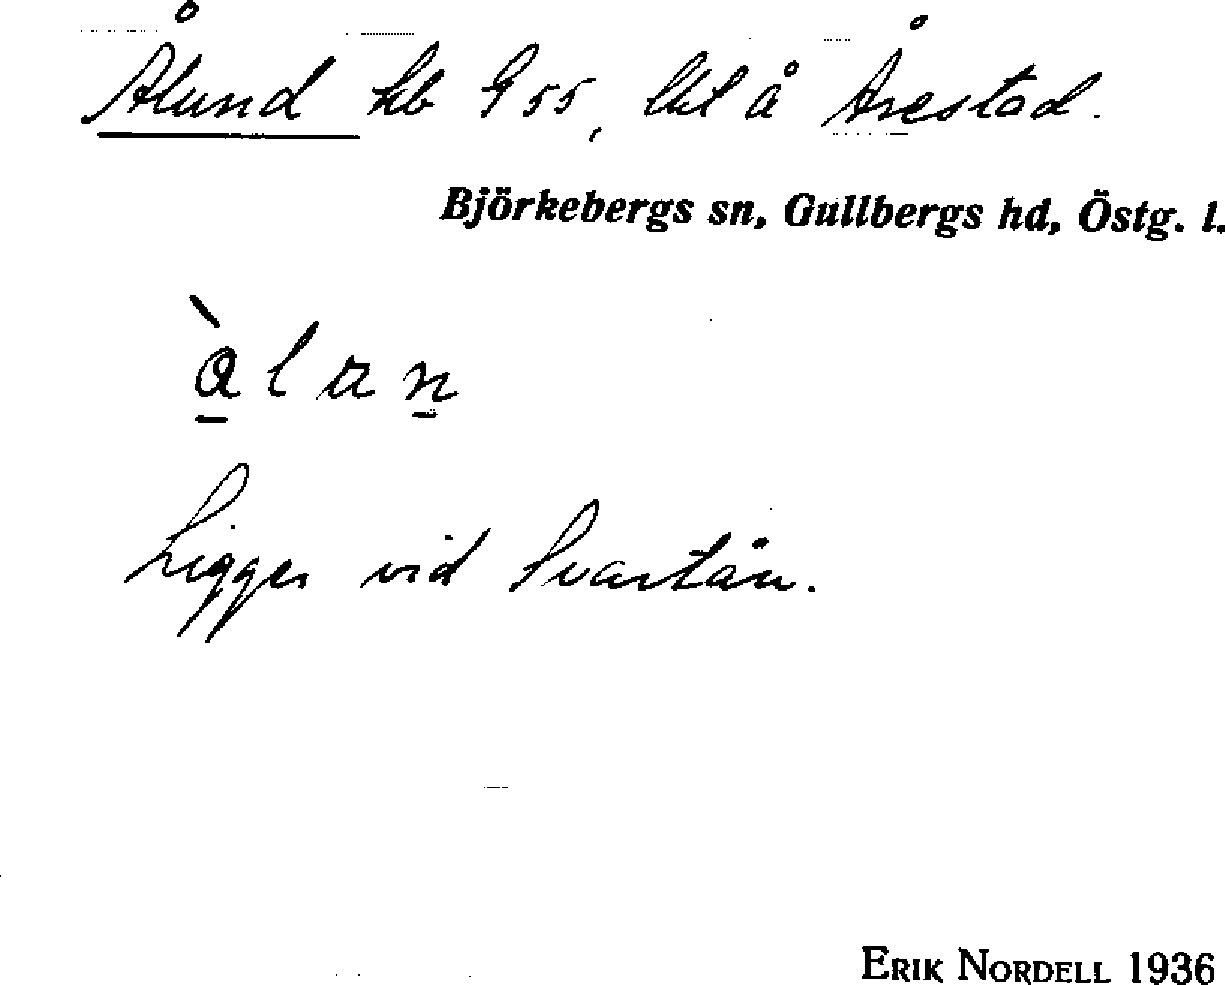 Ålund hb G 55, lht å Årestad.
Björkebergs sn, Gullbergs hd, Östg. l.
Ligger vid Svartån.
ERIK NORDELL 1936